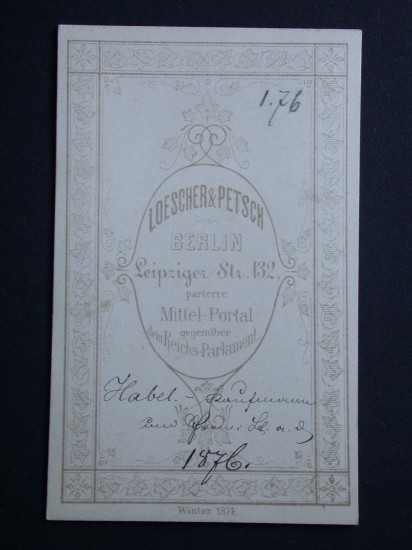 1.76
LOESCHER & PETSCH
BERLIN
Leipziger Str. 132.
parterre
Mittel-Portal
gegenüber
dem Reichs-Parlament.
Habel. - Kaufmann
und
1876.
Winter 187